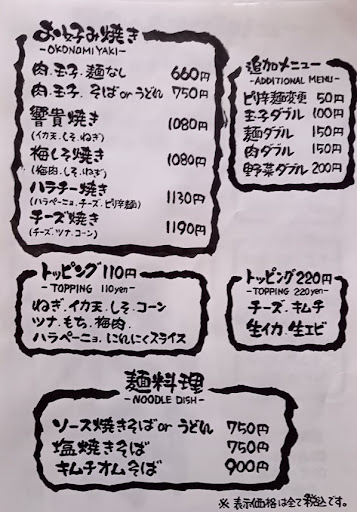 お好み焼き
-OKONOMIYAKI-
肉.玉子.麺なし 660円
肉.玉子.そばorうどん 750円
響貴焼き 1080円
(イカ天.しそ.ねぎ)
梅しそ焼き 1080円
(梅肉.しそ.ねぎ)
ハラチー焼き 1130円
(ハラペーニョ.チーズ.ピリ辛麺)
チーズ焼き 1190円
(チーズ.ツナ.コーン)
追加メニュー
-ADDITIONAL MENU-
ピリ辛麺変更 50円
玉子ダブル 100円
麺ダブル 150円
肉ダブル 150円
野菜ダブル 200円
トッピング110円
-TOPPING 110yen-
ねぎ.イカ天.しそ.コーン
ツナ.もち.梅肉.
ハラペーニョ.にんにくスライス
トッピング220円
-TOPPING 220yen-
チーズ.キムチ
生イカ.生エビ
麺料理
-NOODLE DISH-
ソース焼きそばorうどん 750円
塩焼きそば 750円
キムチオムそば 900円
※表示価格は全て税込です。